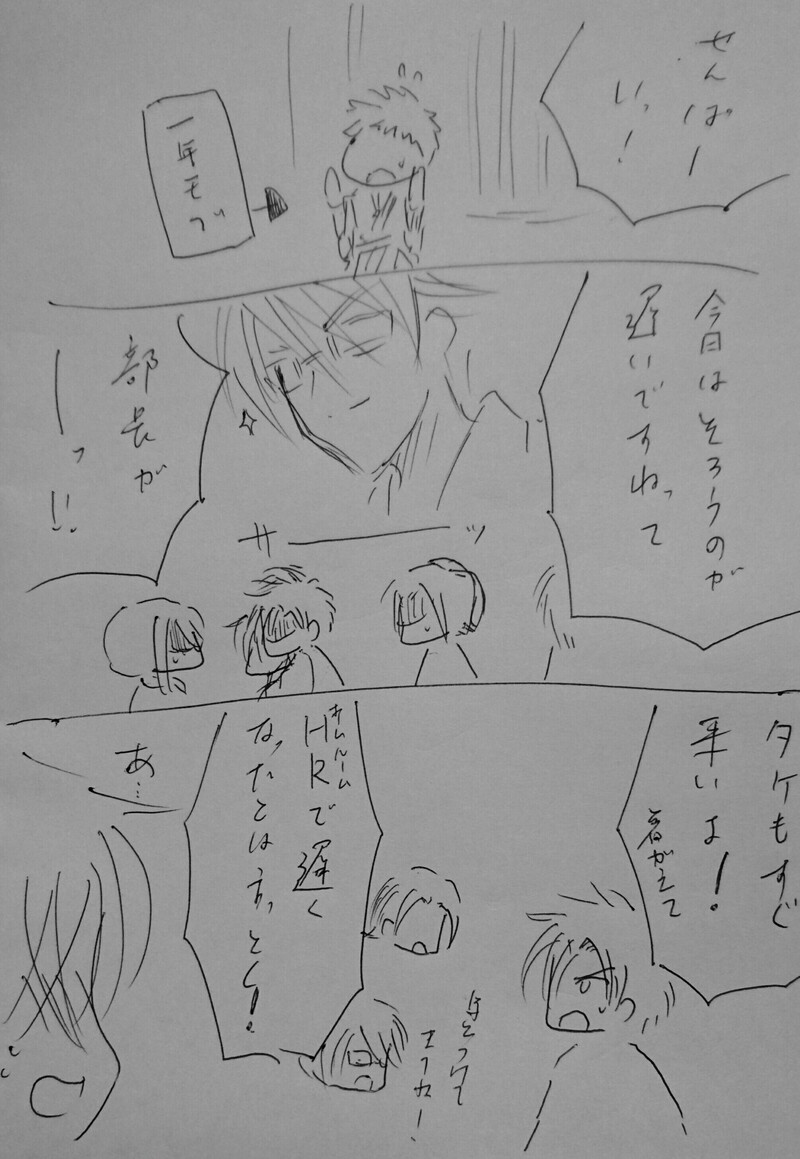 せんぱー
いっ!
一年モブ
今日はそろうのが
遅いですねって
部長が
ーっ!!
サーーッ
タケもすぐ
来いよ!
着がえて
ホームルーム
HRで遅く
なったとは言っとく!
あ…